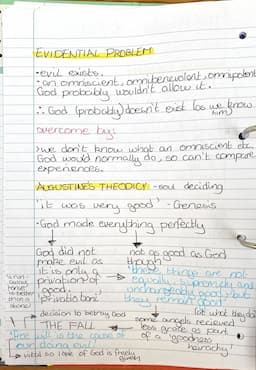 EVIDENTIAL PROBLEM
- evil exists.
- an omniscient, omnibenevolent, omnipotent
God probably wouldn't allow it.
∴ God (probably) doesn't exist (as we know
him)
overcome by:
> we don't know what an omniscient etc.
God would normally do, so can't compare
experiences.
AUGUSTINE'S THEODICY - soul deciding
'it was very good' - Genesis
- God made everything perfectly
God did not
make evil as
it is only a
privation of
good.
'privatio boni'
not as good as God
though
'these things are not
equally, supremely and
unchangeably good, but
they remain good'
horse
is better
than a
stone
→ decision to betray God
THE FALL
(at what they do)
some angels recieved
less grace as part
of a 'goodness
heirachy'
'free will is the cause of
our doing evil'
→ vital so love of God is freely
given